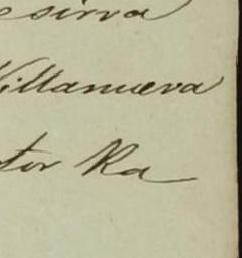 esirva
Villanueva
tor Ra